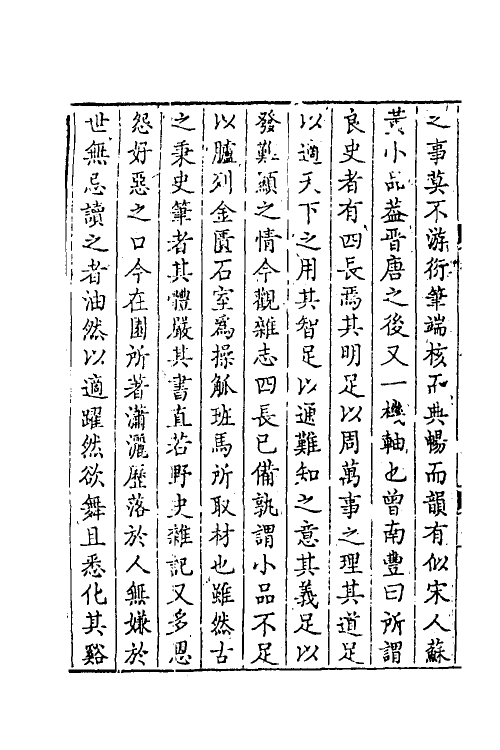 之事莫不游衍筆端核而典暢而韻有似宋人蘇
黃小品葢晋唐之後又一機軸也曾南豐曰所謂
良史者有四長焉其明足以周萬事之理其道足
以適天下之用其智足以通難知之意其義足以
發難顯之情今觀雜志四長已備孰謂小品不足
以臚列金匱石室爲操觚班馬所取材也雖然古
之秉史筆者其體嚴其書直若野史雜記又多恩
怨好惡之口今在園所著瀟灑歷落於人無嫌於
世無忌讀之者油然以適躍然欲舞且悉化其谿